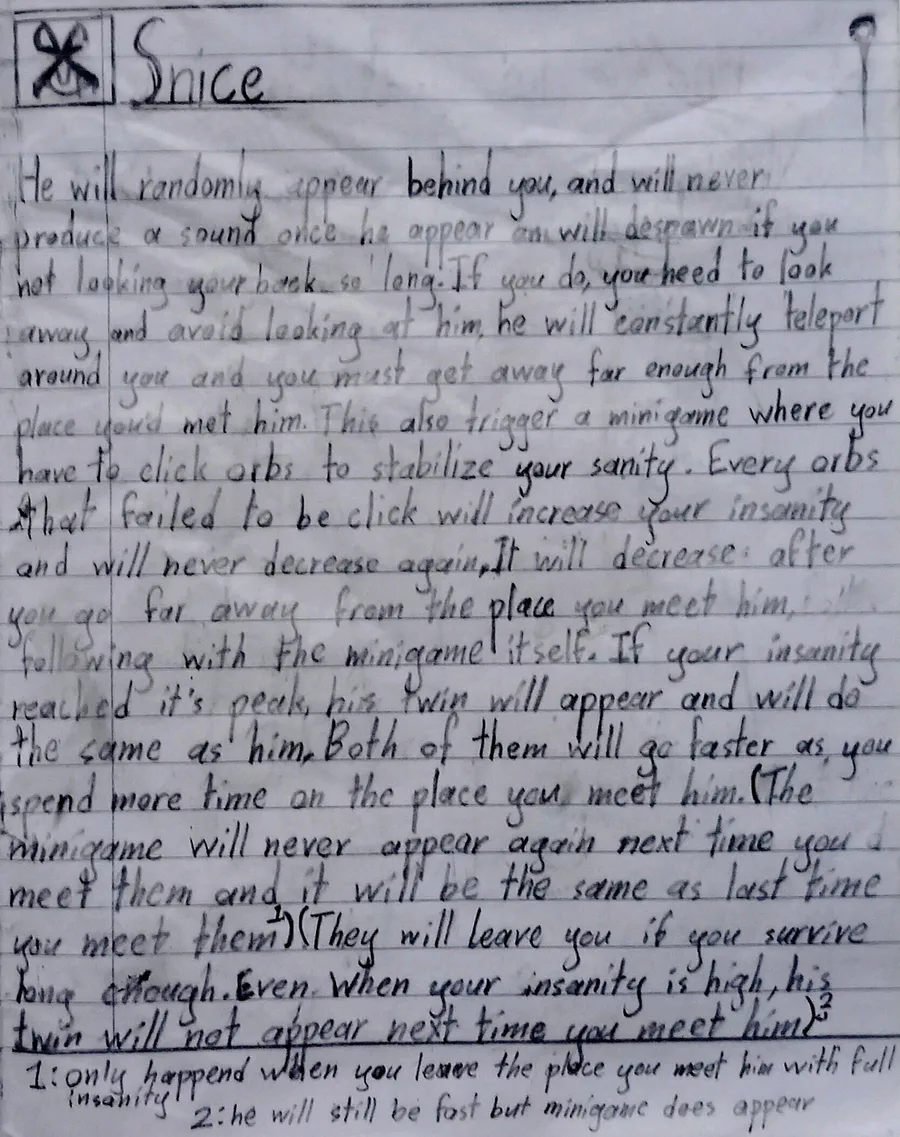 Snice
He will randomly appear behind you, and will never
produce a sound once he appear an will despawn if you
not looking your back so long. If you do, you need to look
away and avoid looking at him, he will constantly teleport
around you and you must get away far enough from the
place you'd met him. This also trigger a minigame where you
have to click orbs to stabilize your sanity. Every orbs
that failed to be click will increase your insanity
and will never decrease again, It will decrease after
you go far away from the place you meet him,
following with the minigame itself. If your insanity
reached it's peak, his twin will appear and will do
the same as him. Both of them will go faster as you
spend more time on the place you meet him. (The
minigame will never appear again next time you
meet them and it will be the same as last time
you meet them¹) (They will leave you if you survive
long enough. Even when your insanity is high, his
twin will not appear next time you meet him)²
1: only happend when you leave the place you meet him with full
insanity
2: he will still be fast but minigame does appear